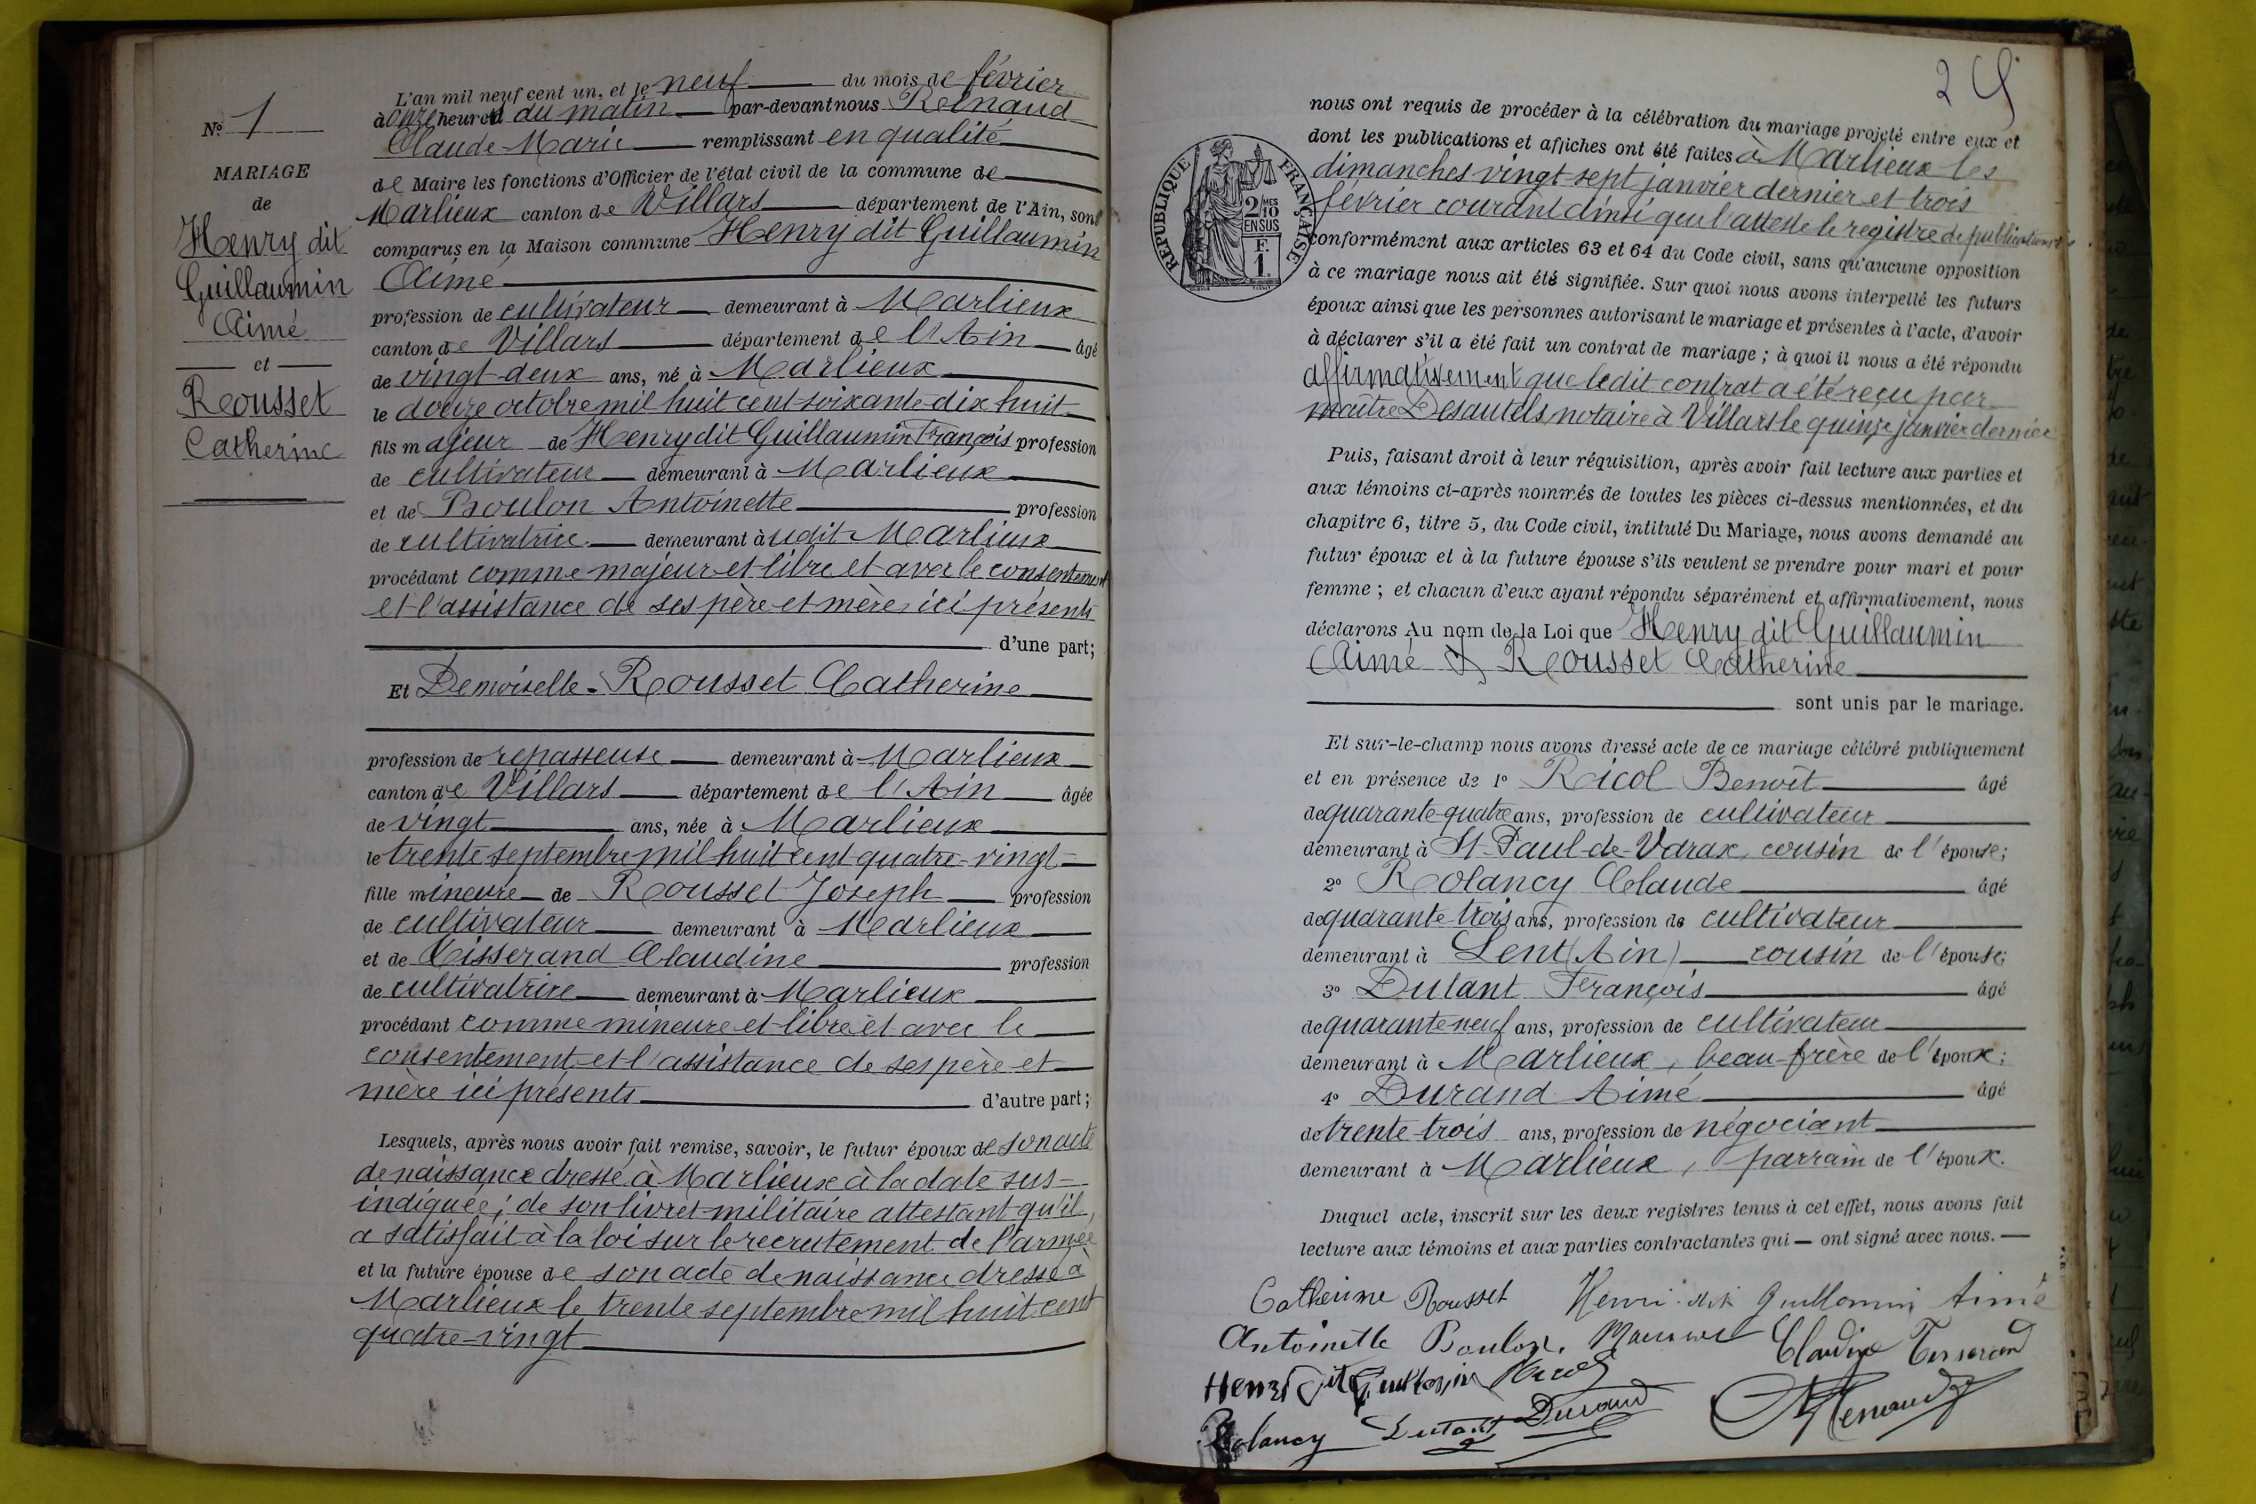 Nº 1
MARIAGE
de
Henry dit
Guillaumin
Aimé
et
Rousset
Catherine
L'an mil neuf cent un, et le neuf du mois de février
à onze heures du matin par-devant nous Renaud
Claude Marie remplissant en qualité
de Maire les fonctions d'Officier de l'état civil de la commune de
Marlieux canton de Villars département de l'Ain, sont
comparus en la Maison commune Henry dit Guillaumin
Aimé
profession de cultivateur demeurant à Marlieux
canton de Villars département de l'Ain âgé
de vingt-deux ans, né à Marlieux
le douze octobre mil huit cent soixante-dix huit
fils majeur de Henry dit Guillaumin François profession
de cultivateur demeurant à Marlieux
et de Boulon Antoinette profession
de cultivatrice demeurant àudit Marlieux
procédant comme majeur et libre et avec le consentement
et l'assistance de ses père et mère ici présents
d'une part;
Et Demoiselle Rousset Catherine
profession de repasseuse demeurant à Marlieux
canton de Villars département de l'Ain âgée
de vingt ans, née à Marlieux
le trente septembre mil huit cent quatre-vingt
fille mineure de Rousset Joseph profession
de cultivateur demeurant à Marlieux
et de Tisserand Claudine profession
de cultivatrice demeurant à Marlieux
procédant comme mineure et libre et avec le
consentement et l'assistance de ses père et
mère ici présents d'autre part;
Lesquels, après nous avoir fait remise, savoir, le futur époux de son acte
de naissance dressé à Marlieux à la date sus-
indiquée; de son livret militaire attestant qu'il
a satisfait à la loi sur le recrutement de l'armée
et la future épouse de son acte de naissance dressé à
Marlieux le trente septembre mil huit cent
quatre-vingt
2
RÉPUBLIQUE FRANÇAISE
2/10 MES
EN SUS
F.
1.
nous ont requis de procéder à la célébration du mariage projeté entre eux et
dont les publications et affiches ont été faites à Marlieux les
dimanches vingt-sept janvier dernier et trois
février courant ainsi que l'atteste le registre de publications
conformément aux articles 63 et 64 du Code civil, sans qu'aucune opposition
à ce mariage nous ait été signifiée. Sur quoi nous avons interpellé les futurs
époux ainsi que les personnes autorisant le mariage et présentes à l'acte, d'avoir
à déclarer s'il a été fait un contrat de mariage; à quoi il nous a été répondu
affirmativement que ledit contrat a été reçu par
maître Desautels, notaire à Villars le quinze janvier dernier
Puis, faisant droit à leur réquisition, après avoir fait lecture aux parties et
aux témoins ci-après nommés de toutes les pièces ci-dessus mentionnées, et du
chapitre 6, titre 5, du Code civil, intitulé Du Mariage, nous avons demandé au
futur époux et à la future épouse s'ils veulent se prendre pour mari et pour
femme; et chacun d'eux ayant répondu séparément et affirmativement, nous
déclarons Au nom de la Loi que Henry dit Guillaumin
Aimé & Rousset Catherine
sont unis par le mariage.
Et sur-le-champ nous avons dressé acte de ce mariage célébré publiquement
et en présence de 1º Ricol Benoît âgé
de quarante-quatre ans, profession de cultivateur
demeurant à St Paul-de-Varax, cousin de l'épouse;
2º Rolancy Claude âgé
de quarante-trois ans, profession de cultivateur
demeurant à Lent (Ain) cousin de l'épouse;
3º Dutant François âgé
de quarante-neuf ans, profession de cultivateur
demeurant à Marlieux, beau-frère de l'époux;
4º Durand Aimé âgé
de trente-trois ans, profession de négociant
demeurant à Marlieux, parrain de l'époux.
Duquel acte, inscrit sur les deux registres tenus à cet effet, nous avons fait
lecture aux témoins et aux parties contractantes qui ont signé avec nous.
Catherine Rousset Henri dit Guillaumin Aimé
Antoinette Boulon. Claudine Tisserand
Rolancy Dutant Durand Renaud